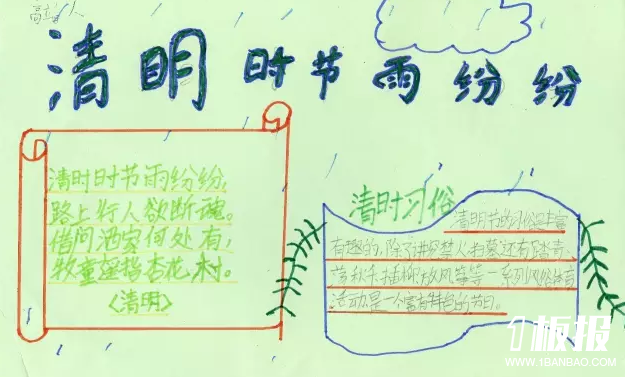 清明时节雨纷纷
清时时节雨纷纷,
路上行人欲断魂。
借问酒家何处有,
牧童遥指杏花村。
<清明>
清时习俗
清明节的习俗是丰富
有趣的,除了讲究禁人扫墓还有踏青、
荡秋千插柳放风筝等一系列风俗体育
活动是一个富有特色的节日。
1板报
WWW.1BANBAO.COM